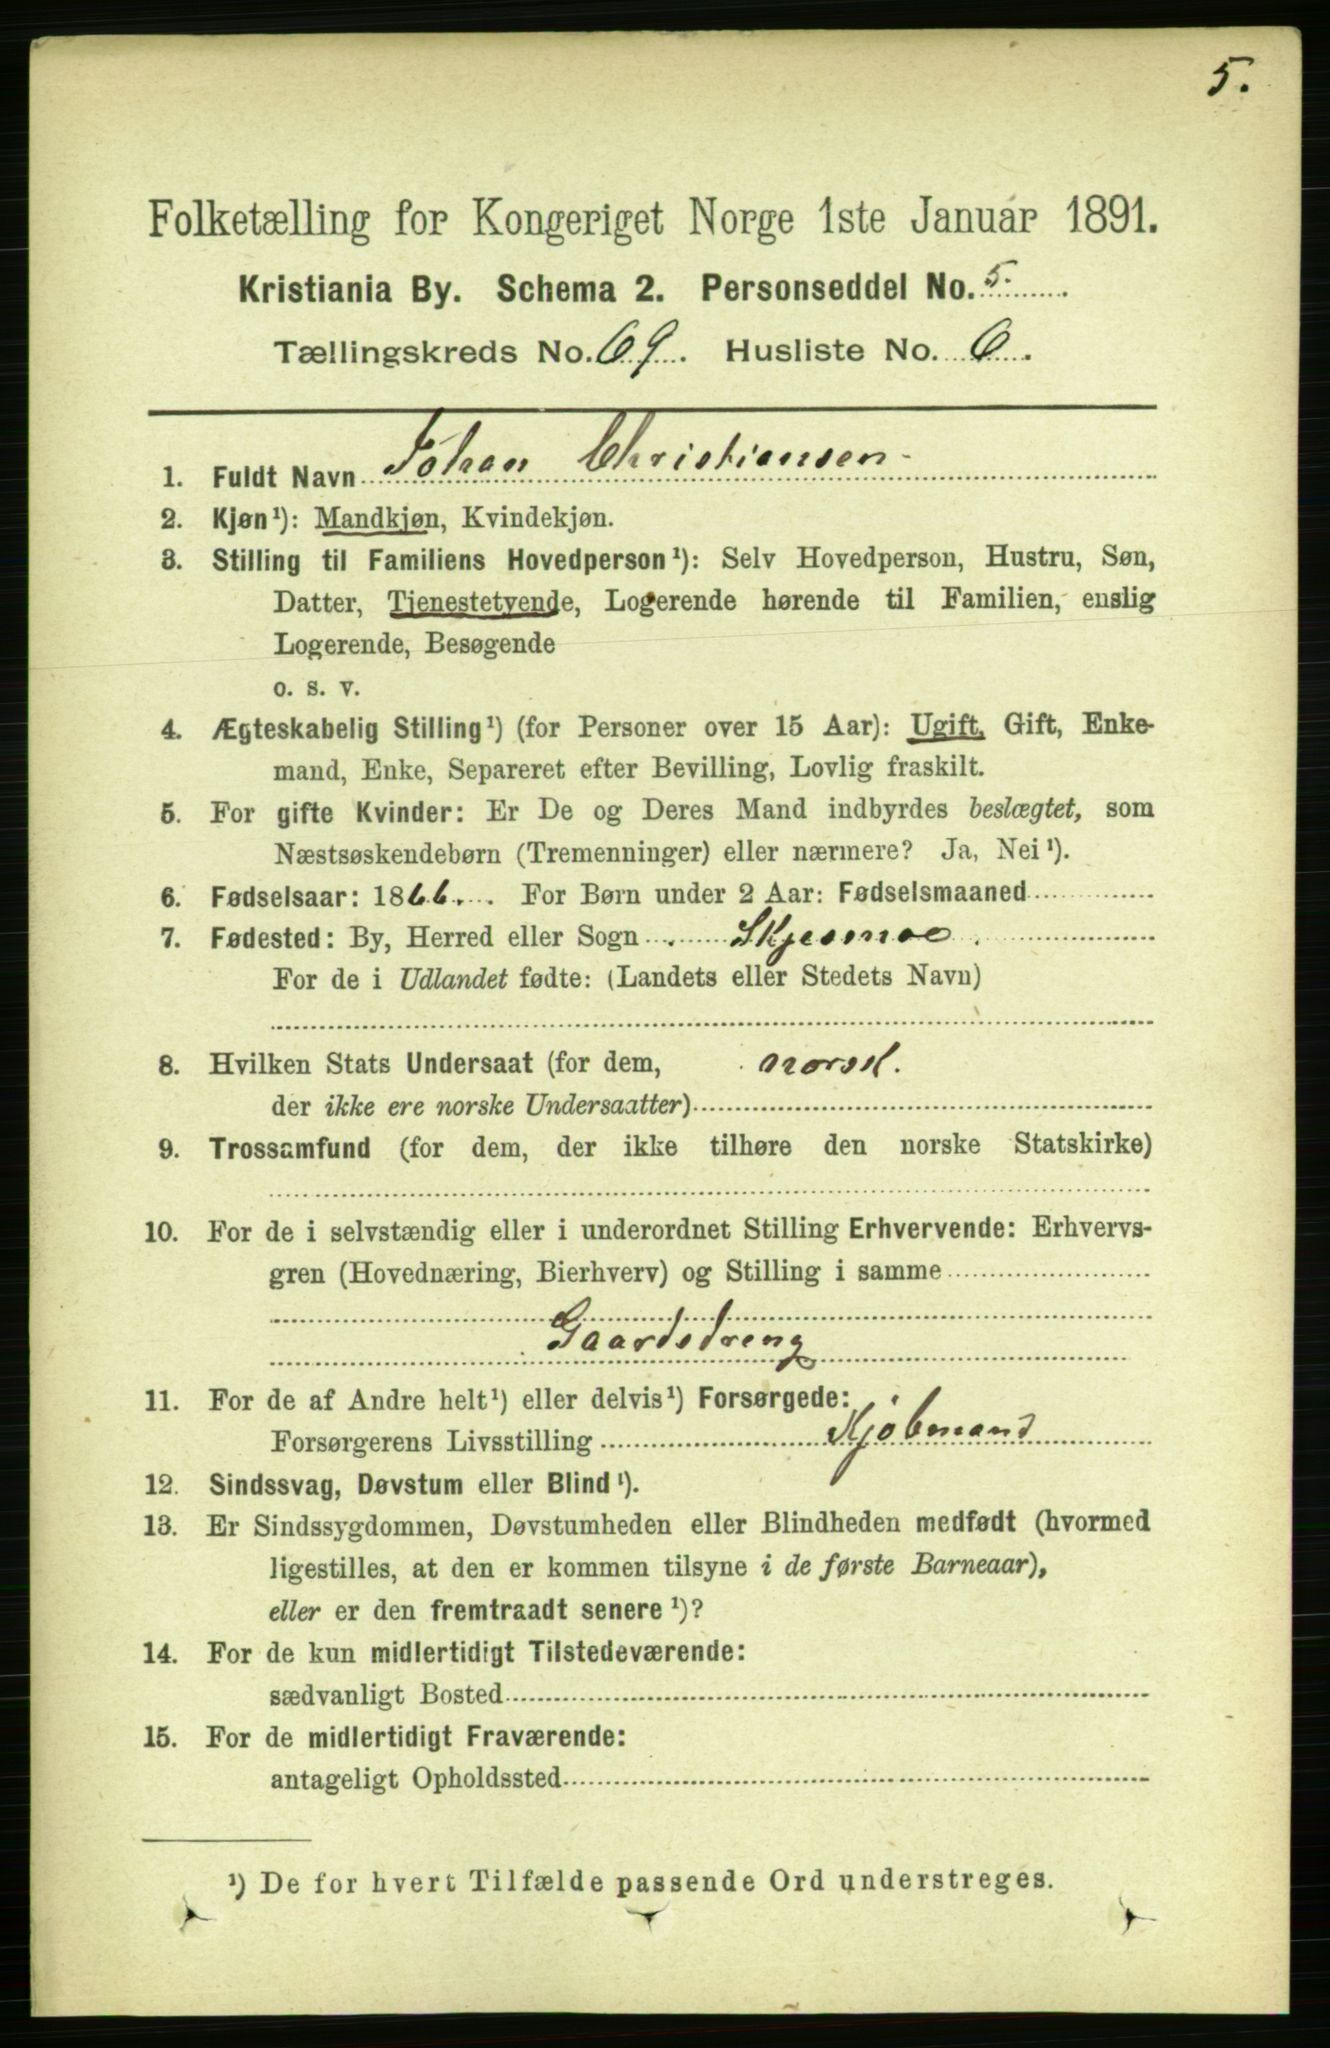 5.
Folketælling for Kongeriget Norge 1ste Januar 1891.
Kristiania By. Schema 2. Personseddel No. 5.
Tællingskreds No. 69. Husliste No. 6.
1. Fuldt Navn Johan Christiansen
2. Kjøn¹): Mandkjøn, Kvindekjøn.
3. Stilling til Familiens Hovedperson¹): Selv Hovedperson, Hustru, Søn,
Datter, Tjenestetyende, Logerende hørende til Familien, enslig
Logerende, Besøgende
o. s. v.
4. Ægteskabelig Stilling¹) (for Personer over 15 Aar): Ugift, Gift, Enke-
mand, Enke, Separeret efter Bevilling, Lovlig fraskilt.
5. For gifte Kvinder: Er De og Deres Mand indbyrdes beslægtet, som
Næstsøskendebørn (Tremenninger) eller nærmere? Ja, Nei¹).
6. Fødselsaar: 1866. For Børn under 2 Aar: Fødselsmaaned
7. Fødested: By, Herred eller Sogn Skjesmoe
For de i Udlandet fødte: (Landets eller Stedets Navn)
8. Hvilken Stats Undersaat (for dem, norsk.
der ikke ere norske Undersaatter)
9. Trossamfund (for dem, der ikke tilhøre den norske Statskirke)
10. For de i selvstændig eller i underordnet Stilling Erhvervende: Erhvervs-
gren (Hovednæring, Bierhverv) og Stilling i samme
Gaardsdreng
11. For de af Andre helt¹) eller delvis¹) Forsørgede:
Forsørgerens Livsstilling Kjøbmand
12. Sindssvag, Døvstum eller Blind¹).
13. Er Sindssygdommen, Døvstumheden eller Blindheden medfødt (hvormed
ligestilles, at den er kommen tilsyne i de første Barneaar),
eller er den fremtraadt senere¹)?
14. For de kun midlertidigt Tilstedeværende:
sædvanligt Bosted
15. For de midlertidigt Fraværende:
antageligt Opholdssted
¹) De for hvert Tilfælde passende Ord understreges.